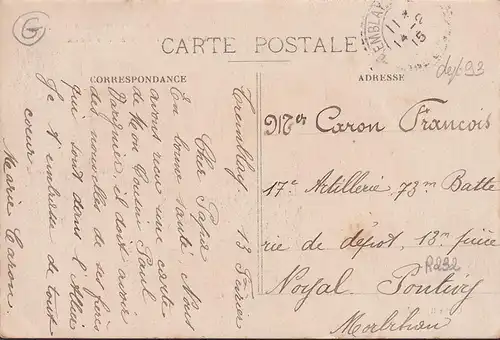 CARTE POSTALE
CORRESPONDANCE
Tremblay 13 Février
Cher Papa
En bonne santé Nous
avons reçu une carte
de Mon Cousin Paul
il doit avoir
des nouvelles de ses frères
qui sont dans l'
Je t'embrasse de tout
cœur.
Marie Caron.
ADRESSE
Caron François
17e Artillerie, 73m Batte
rie de dépot, 13m pièce
Noyal Pontivy
Morbihan
14-2
15
dep 93
R232